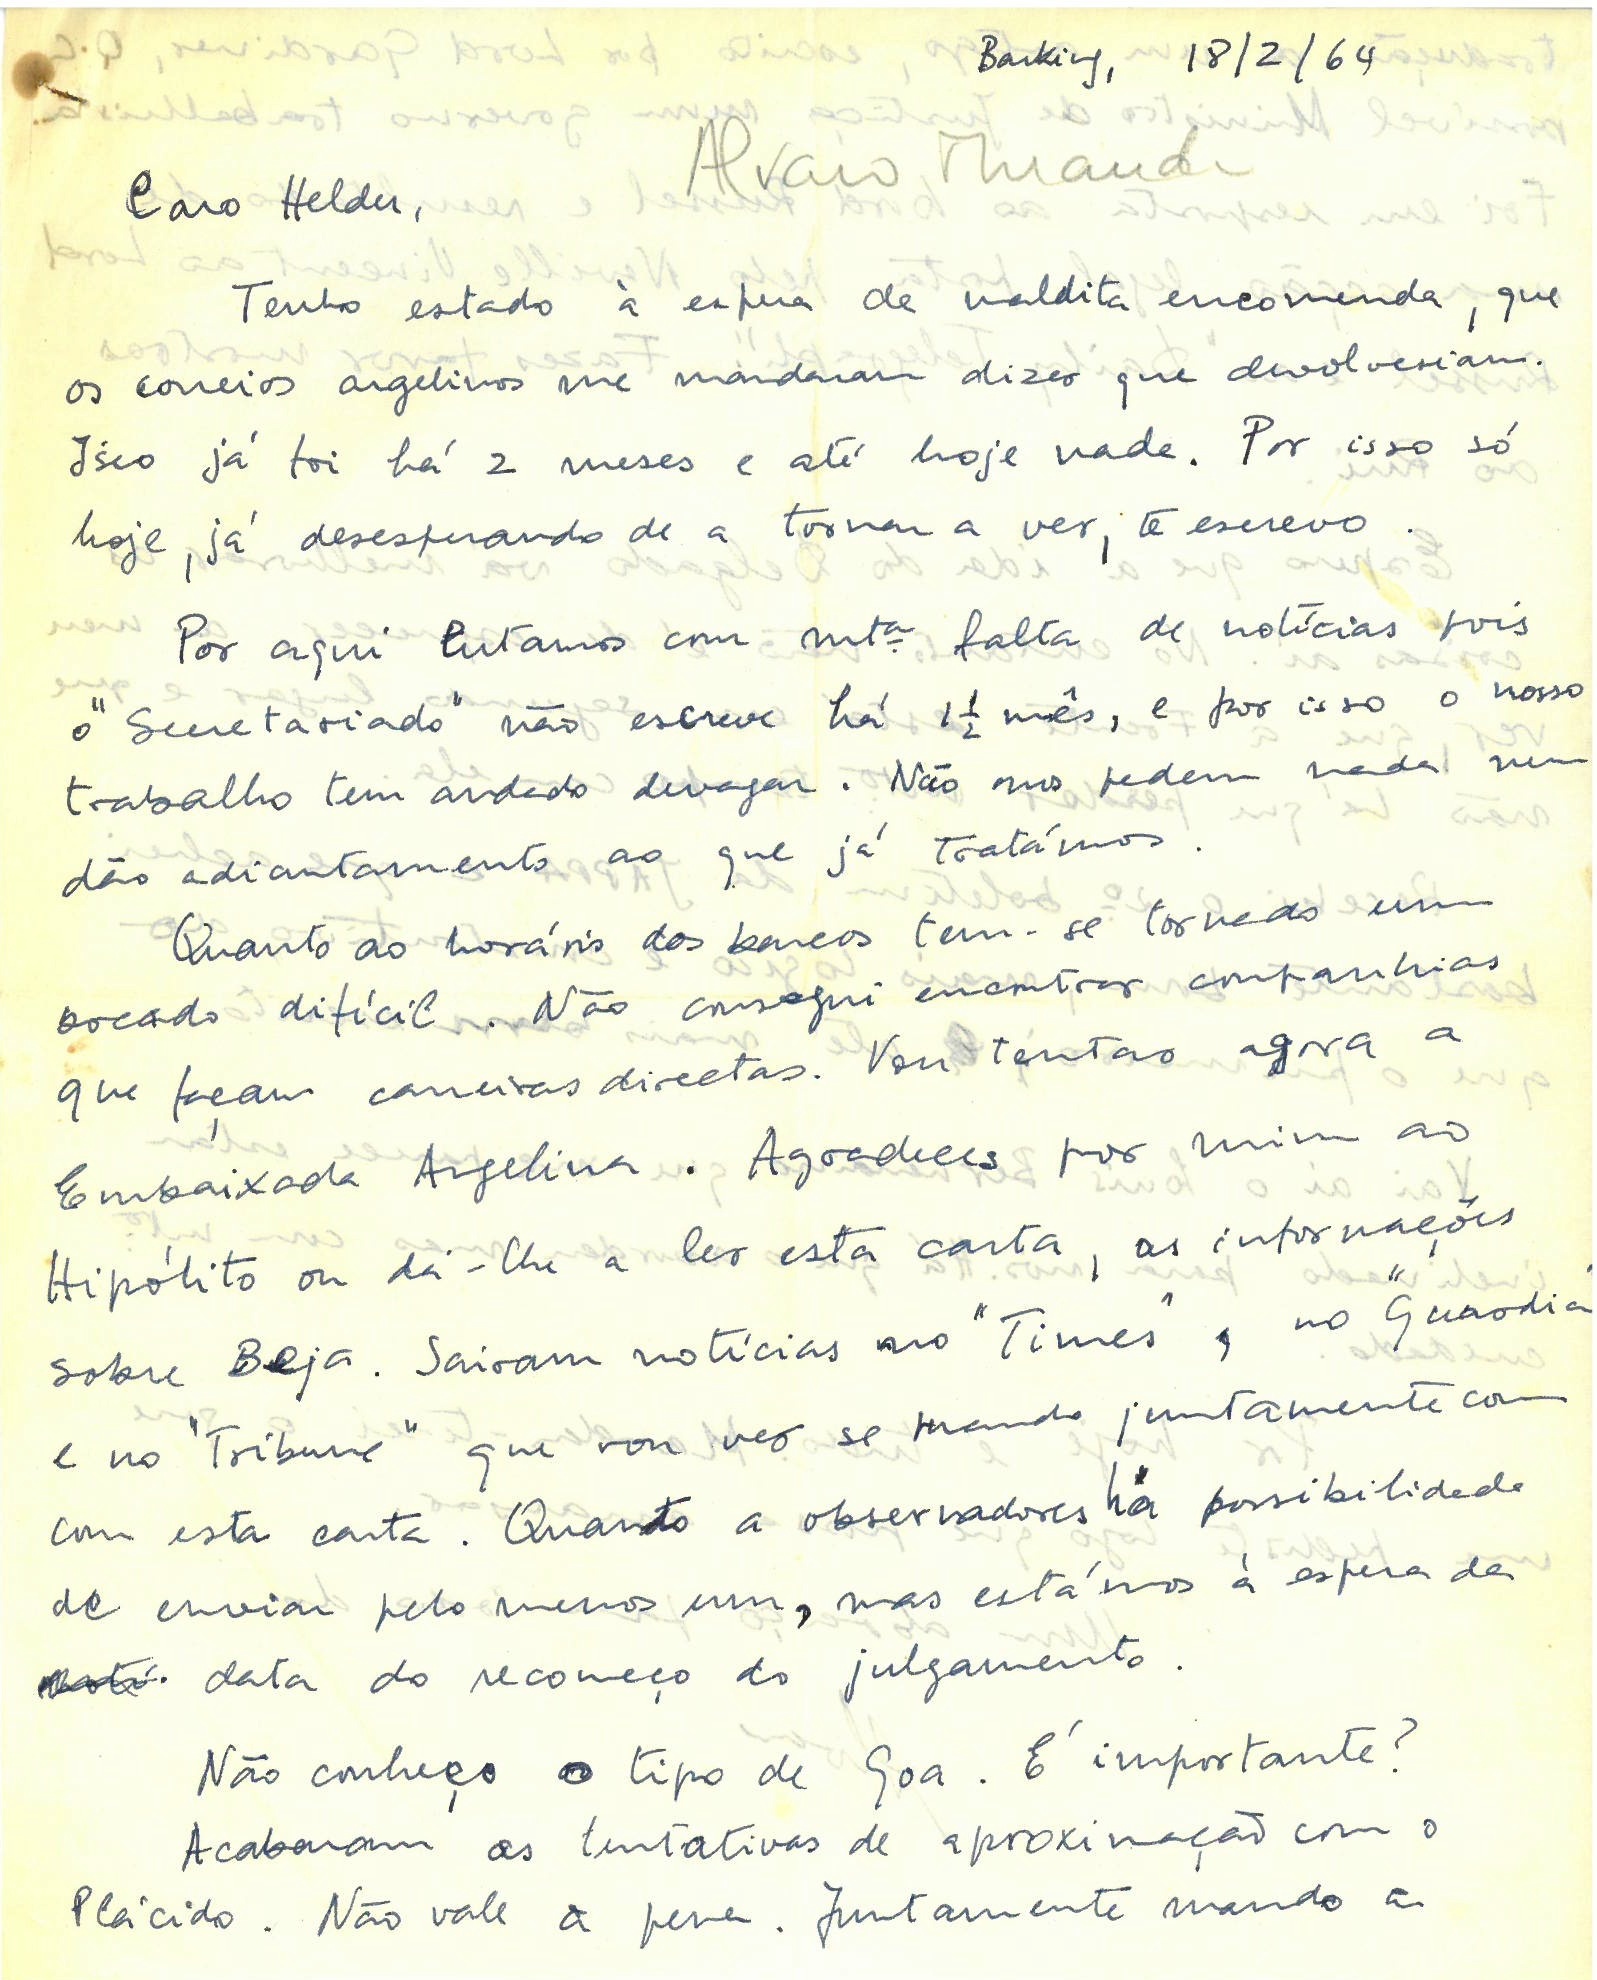 Barking, 18/2/64
Alvaro Miranda
Caro Helder,
Tenho estado à espera de maldita encomenda, que
os correios argelinos me mandaram dizer que devolveriam.
Isso já foi há 2 meses e até hoje nada. Por isso só
hoje, já desesperando de a tornar a ver, te escrevo.
Por aqui lutamos com mta falta de notícias pois
o "Secretariado" não escreve há 1 1/2 mês, e por isso o nosso
trabalho tem andado devagar. Não nos pedem nada nem
dão adiantamento ao que já tratámos.
Quanto ao horário dos barcos tem-se tornado um
bocado difícil. Não consegui encontrar companhias
que façam carreiras directas. Vou tentar agora a
Embaixada Argelina. Agradeces por mim ao
Hipólito ou dá-lhe a ler esta carta, as informações
sobre Beja. Sairam notícias no "Times", no "Guardia
e no "Tribune" que vou ver se mando juntamente com
com esta carta. Quanto a observadores há possibilidade
de enviar pelo menos um, mas estámos à espera da
data do recomeço do julgamento.
Não conheço o tipo de Goa. É importante?
Acabaram as tentativas de aproximação com o
Plácido. Não vale a pena. Juntamente mando a